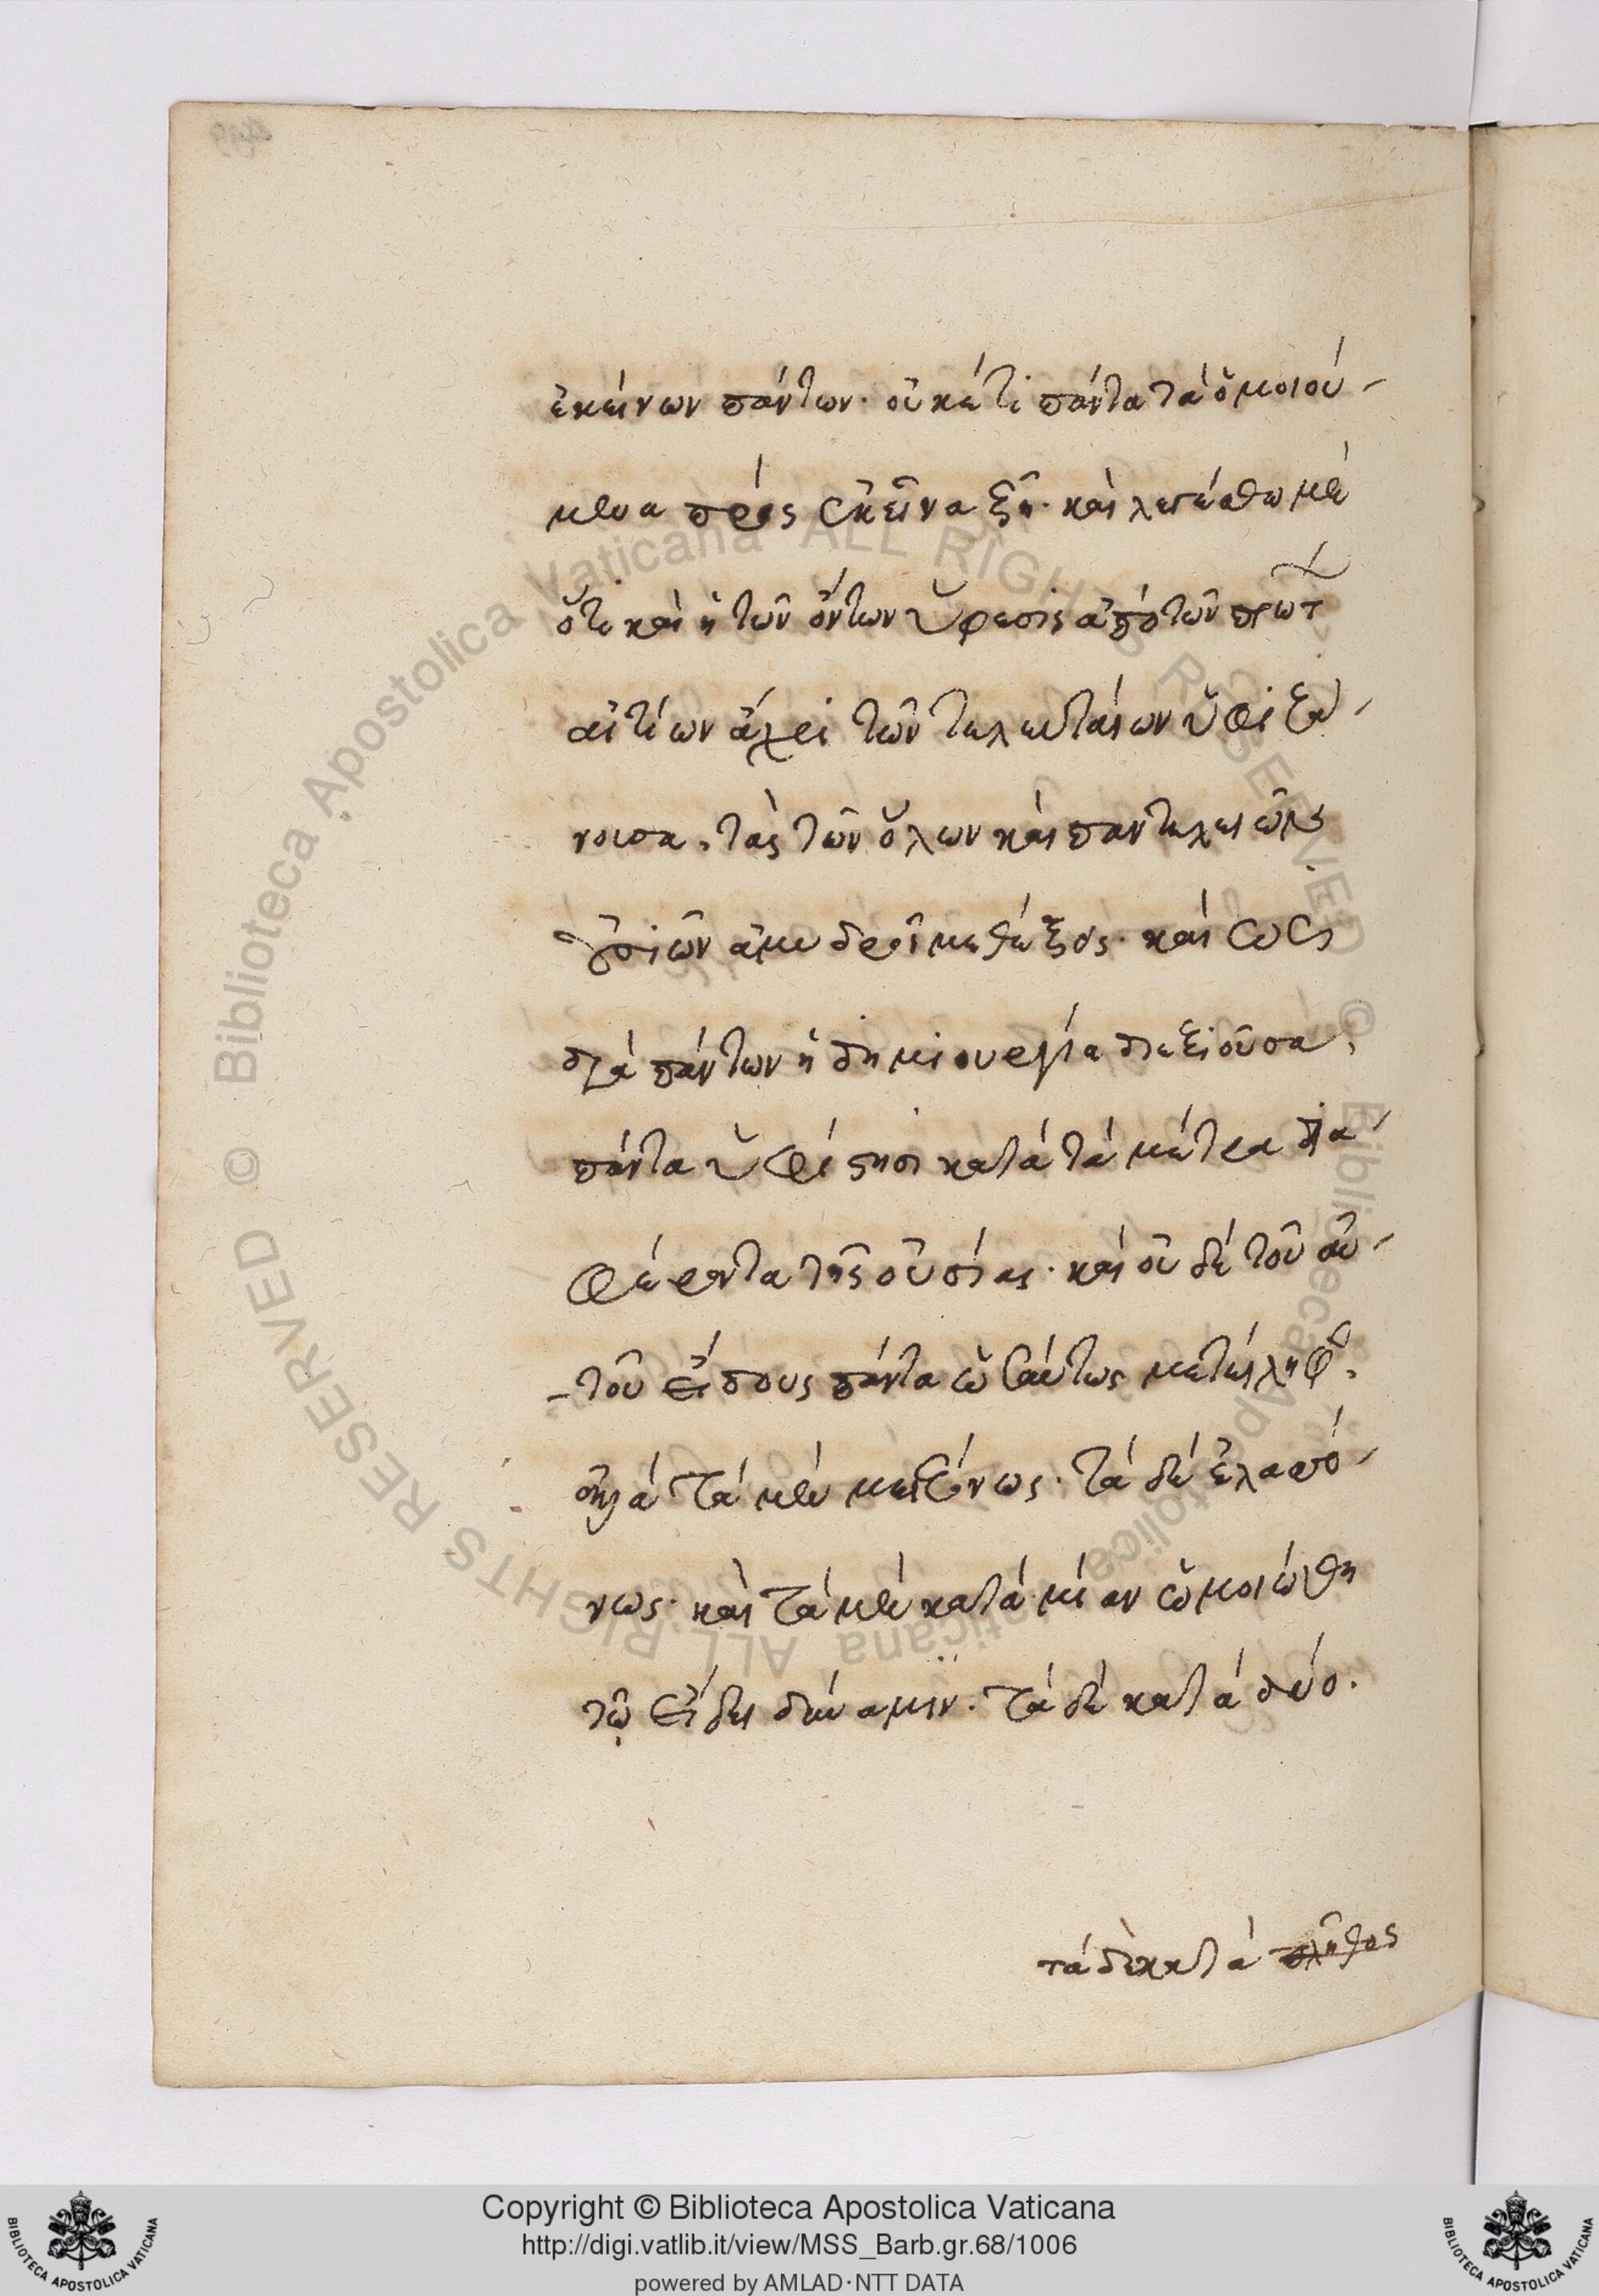 ἐκείνων πάντων· οὐκέτι πάντα τὰ ὁμοιού-
μενα πρὸς ἐκεῖνα ζῇ· καὶ λεγέσθω μὲν
ὅτι καὶ ἡ τῶν ὄντων ὕφεσις ἀπὸ τῶν πρώτ
αἰτίων ἄχρι τῶν τελευταίων ὑφιζά-
νουσα, τὰς τῶν ὅλων καὶ παντελείων
αἰτιῶν ἀμυδροῖ μεθέξεις· καὶ ὡς
διὰ πάντων ἡ δημιουργία διεξιοῦσα,
πάντα ὑφίστησι κατὰ τὰ μέτρα δια-
φέροντα τῆς οὐσίας· καὶ οὐδὲ τοῦ αὐ-
-τοῦ εἴδους πάντα ὡσαύτως μετείληφ,
ἀλλὰ τὰ μὲν μειζόνως· τὰ δὲ ἐλαττό-
νως· καὶ τὰ μὲν κατὰ μίαν ὡμοιώθη
τῷ εἴδει δύναμιν· τὰ δὲ κατὰ δύο.
τὰ δὲ κατὰ πλῆθος
Biblioteca Apostolica Vaticana ALL RIGHTS RESERVED ©
Biblioteca Apostolica Vaticana ALL RIGHTS RESERVED ©
Copyright © Biblioteca Apostolica Vaticana
http://digi.vatlib.it/view/MSS_Barb.gr.68/1006
powered by AMLAD·NTT DATA
BIBLIOTECA APOSTOLICA VATICANA
BIBLIOTECA APOSTOLICA VATICANA